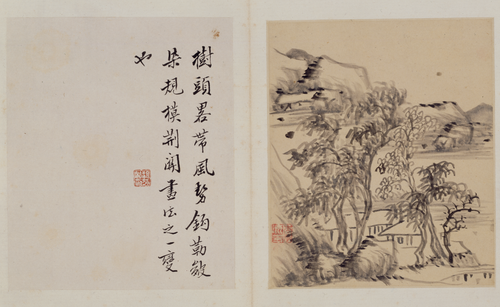 樹頭畧帶風勢鈎勒皴
染規模荆關畫法之一變
也